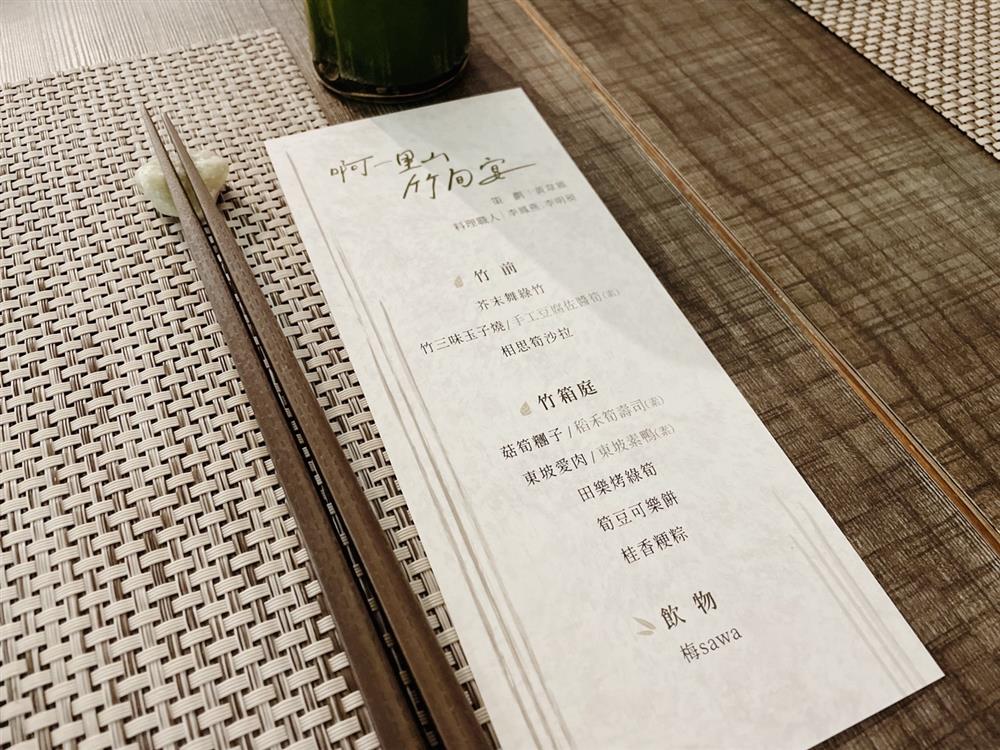 啊一里山
竹旬宴
策 劃 | 黃韋維
料理職人 | 李鳳燕・李明裕
竹 前
芥末舞綠竹
竹三味玉子燒/手工豆腐佐醬筍(素)
相思筍沙拉
竹箱庭
菇筍糰子/稻禾筍壽司(素)
東坡愛肉/東坡素鴨(素)
田樂烤綠筍
筍豆可樂餅
桂香粳粽
飲 物
梅sawa